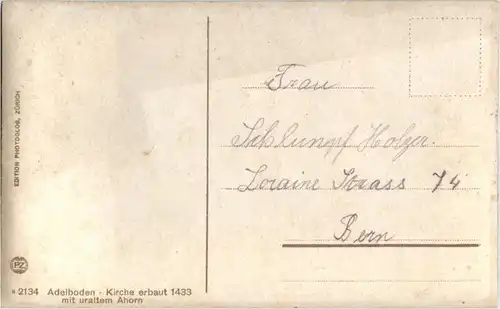 EDITION PHOTOGLOB, ZÜRICH
Frau
Schlumpf Holzer.
Loraine Strass 74
Bern
PZ
2134 Adelboden - Kirche erbaut 1433
mit uraltem Ahorn